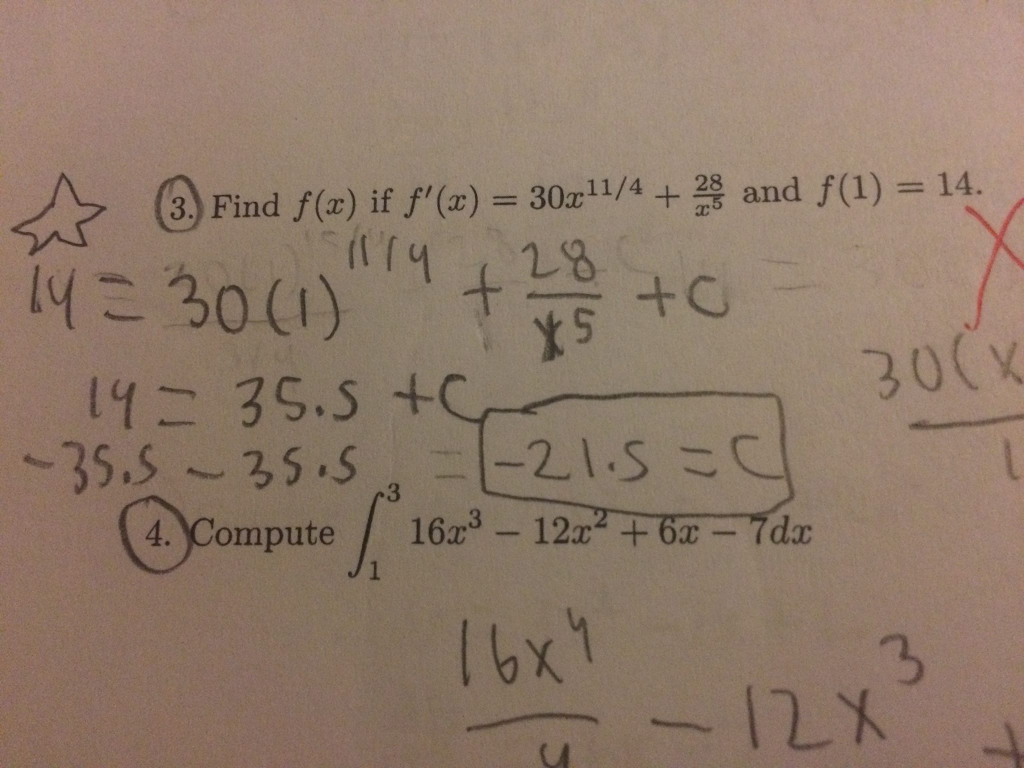 3. Find f(x) if f'(x) = 30x^{11/4} + \frac{28}{x^5} and f(1) = 14.
14 = 30(1)^{11/4} + \frac{28}{x^5} + C =
14 = 35.5 + C
30(x
1
-35.5 - 35.5 = -21.5 = C
4. Compute \int_1^3 16x^3 - 12x^2 + 6x - 7dx
\frac{16x^4}{4} - 12x^3 +